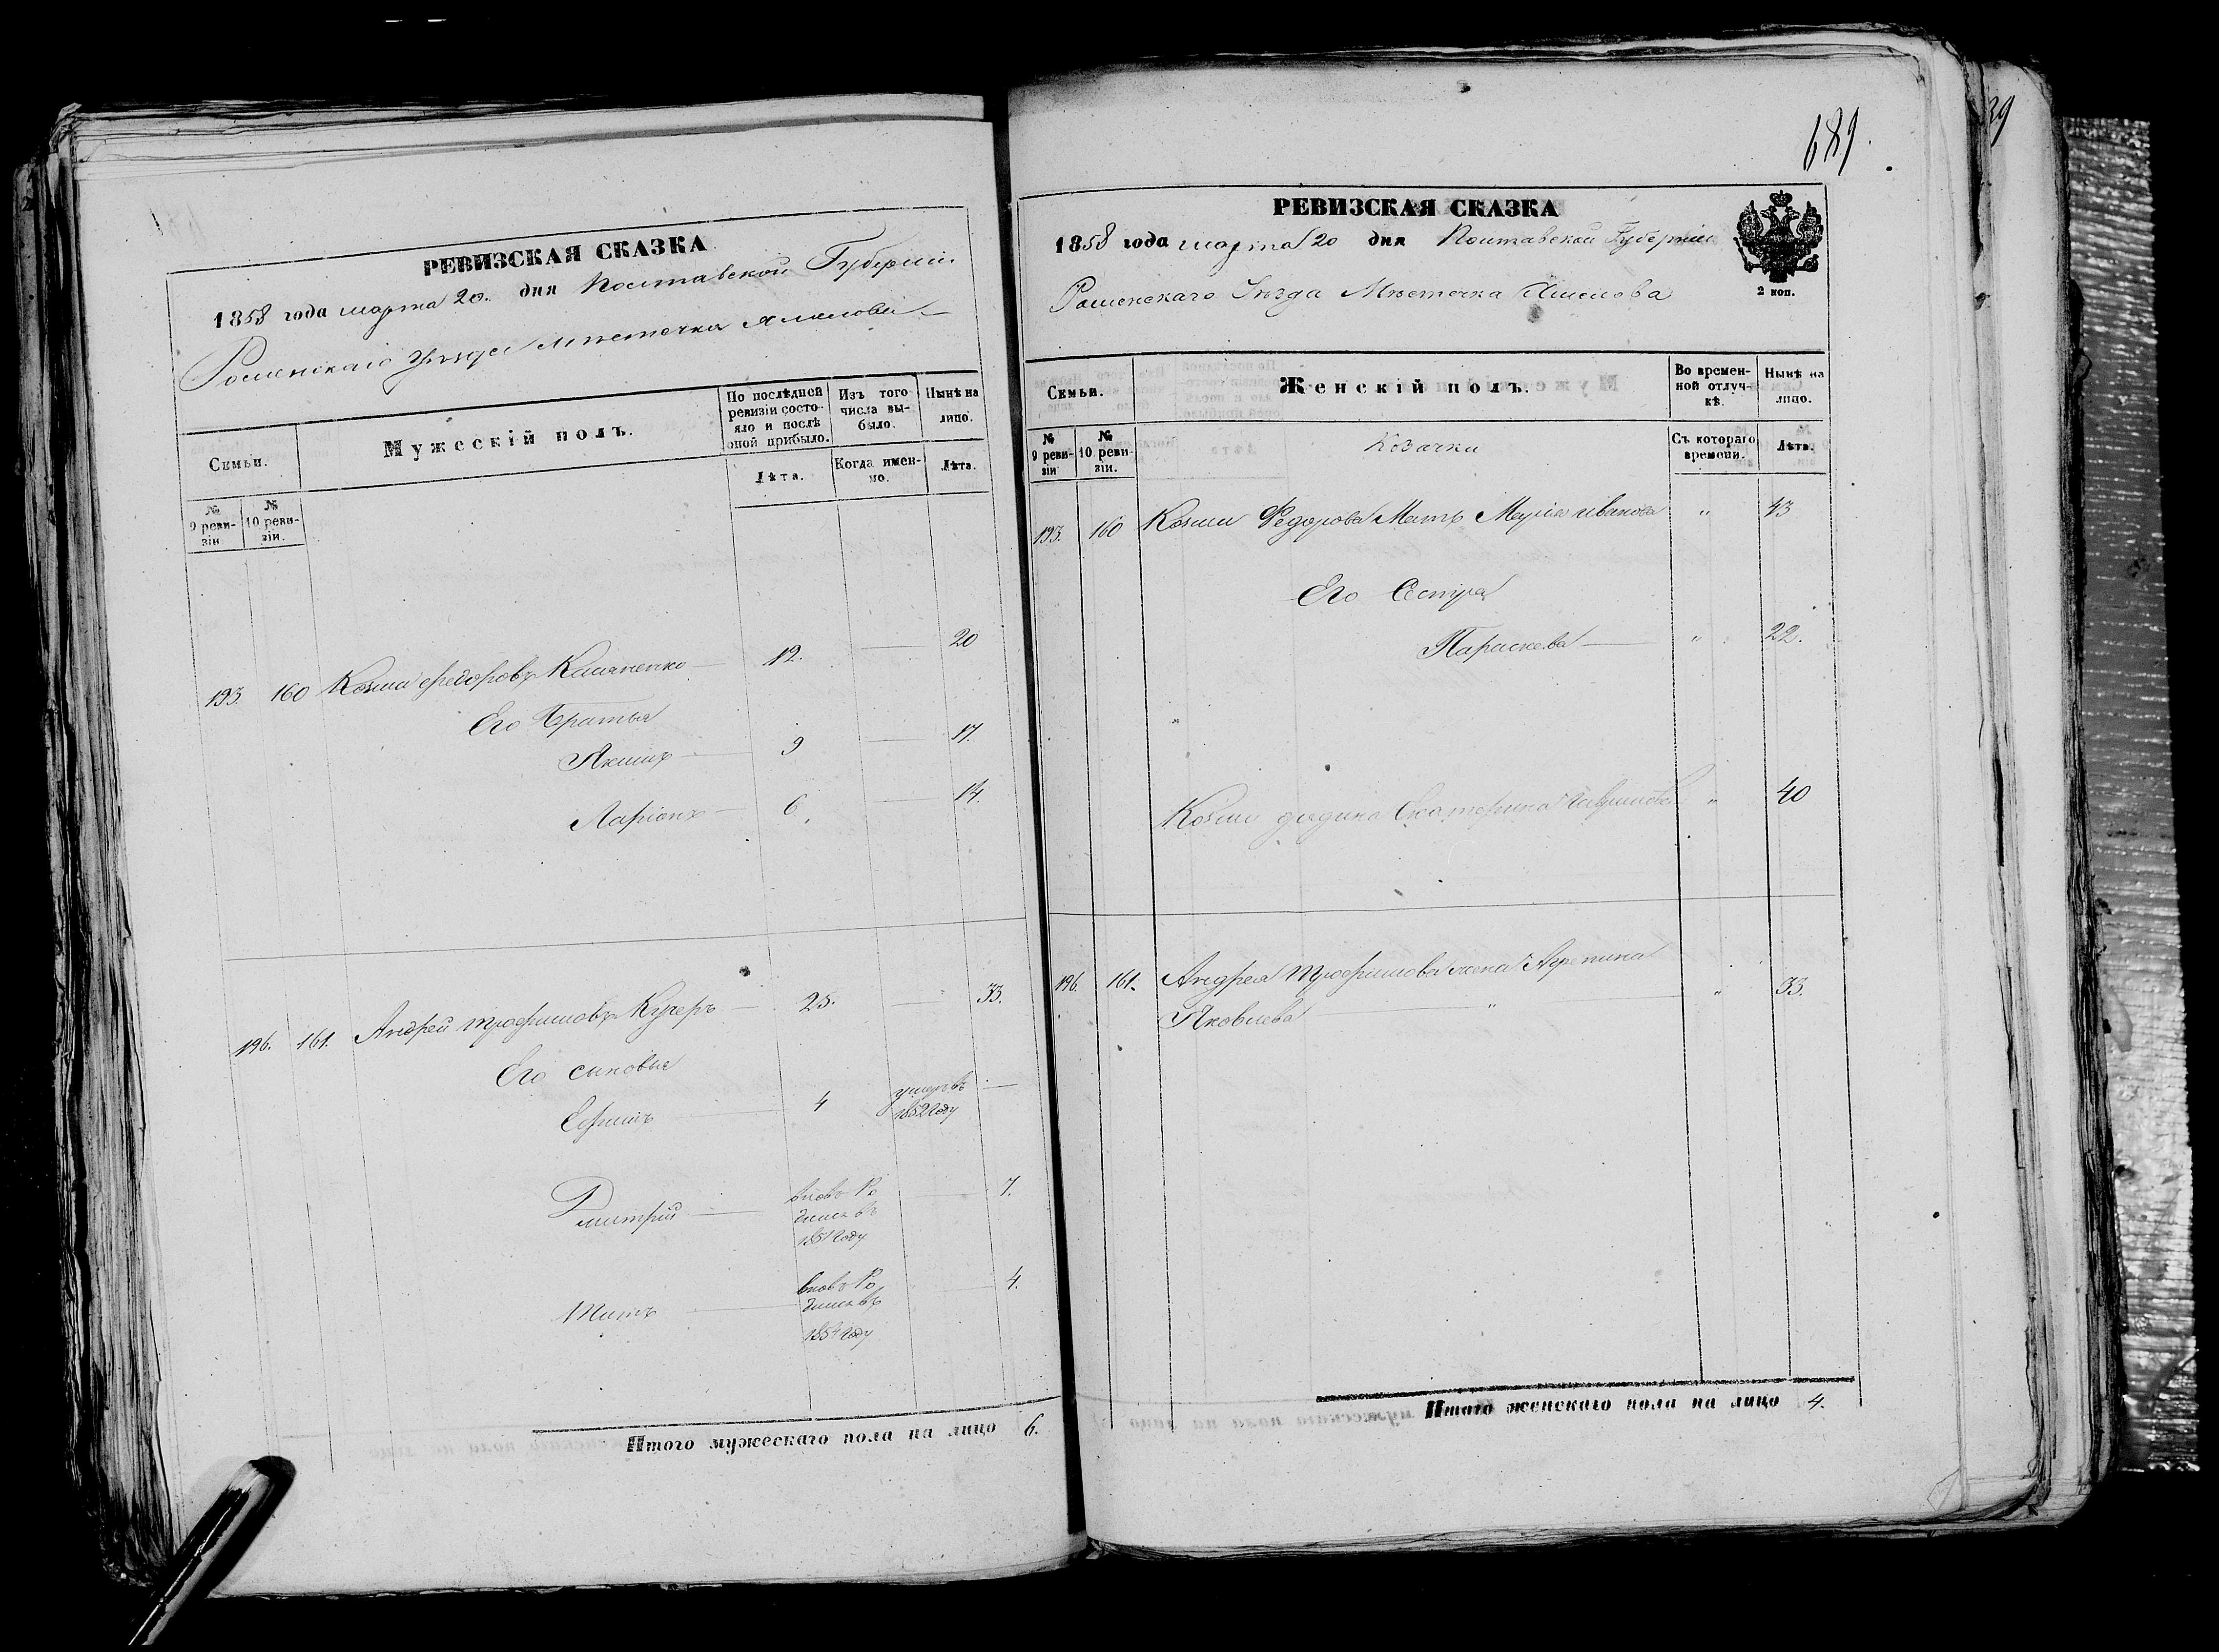 РЕВИЗСКАЯ СКАЗКА
1858 года марта 20. дня Полтавской Губерніи
Роменскаго Уѣзда Мѣстечка Смелова
Семьи.
Мужескій полъ.
По послѣдней ревизіи состояло и послѣ оной прибыло.
Изъ того числа выбыло.
Нынѣ на лицо.
№ 9 ревизіи
№ 10 ревизіи.
Лѣта.
Когда именно.
Лѣта.
193. 160 Козма Федоровъ Касяненко 12. 20
Его Братья
Якимъ 9 17.
Ларіонъ 6. 14.
196. 161. Андрей Трофимовъ Кучеръ 25. 33.
Его сыновья
Ефимъ 4 умеръ въ 1852 году
Дмитрій вновь родился въ 1851 году 7.
Титъ вновь родился въ 1854 году 4.
Итого мужескаго пола на лицо 6.
689.
РЕВИЗСКАЯ СКАЗКА
1858 года марта 20 дня Полтавской Губерніи
2 коп.
Роменскаго Уѣзда Мѣстечка Смелова
Семьи.
Женскій полъ.
Во временной отлучкѣ.
Нынѣ на лицо.
№ 9 ревизіи
№ 10 ревизіи.
Козачки
Съ котораго времени.
Лѣта.
193. 160 Козми Федорова Мать Марія Иванова " 43
Его Сестра
Параскева " 22.
Козми дядина Екатерина " 40
196. 161. Андрея Трофимова жена Агрепина
Яковлева " " 33.
Итого женскаго пола на лицо 4.
39